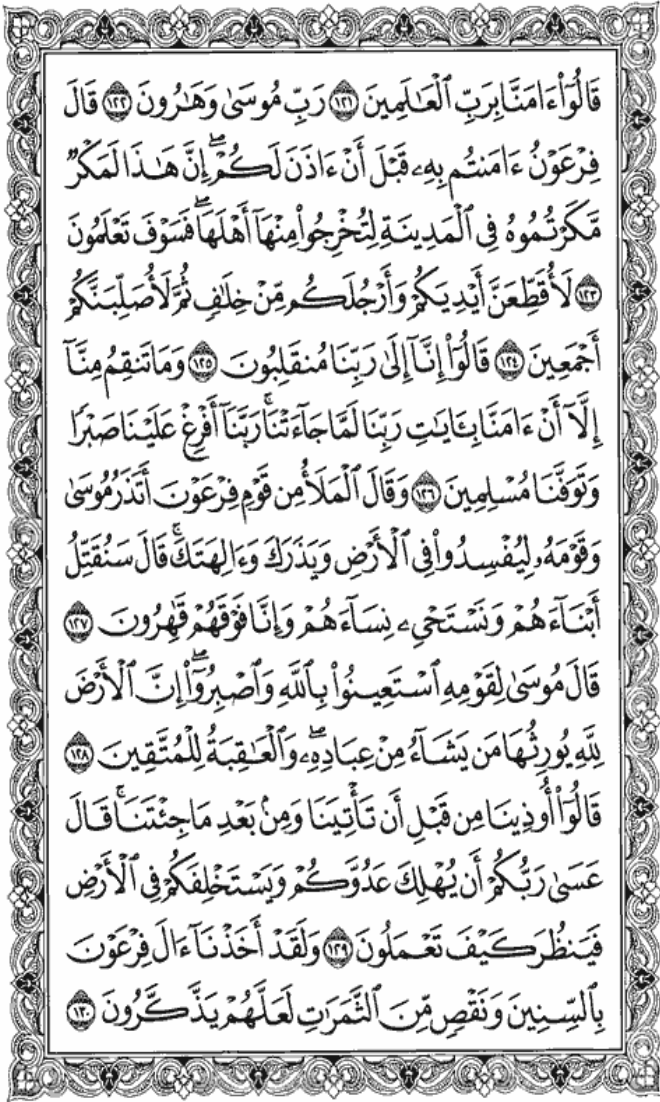 قَالُوٓا۟ ءَامَنَّا بِرَبِّ ٱلْعَـٰلَمِينَ ١٢١ رَبِّ مُوسَىٰ وَهَـٰرُونَ ١٢٢ قَالَ
فِرْعَوْنُ ءَامَنتُم بِهِۦ قَبْلَ أَنْ ءَاذَنَ لَكُمْ ۖ إِنَّ هَـٰذَا لَمَكْرٌ
مَّكَرْتُمُوهُ فِى ٱلْمَدِينَةِ لِتُخْرِجُوا۟ مِنْهَآ أَهْلَهَا ۖ فَسَوْفَ تَعْلَمُونَ
١٢٣ لَأُقَطِّعَنَّ أَيْدِيَكُمْ وَأَرْجُلَكُم مِّنْ خِلَـٰفٍ ثُمَّ لَأُصَلِّبَنَّكُمْ
أَجْمَعِينَ ١٢٤ قَالُوٓا۟ إِنَّآ إِلَىٰ رَبِّنَا مُنقَلِبُونَ ١٢٥ وَمَا تَنقِمُ مِنَّآ
إِلَّآ أَنْ ءَامَنَّا بِـَٔايَـٰتِ رَبِّنَا لَمَّا جَآءَتْنَا ۚ رَبَّنَآ أَفْرِغْ عَلَيْنَا صَبْرًا
وَتَوَفَّنَا مُسْلِمِينَ ١٢٦ وَقَالَ ٱلْمَلَأُ مِن قَوْمِ فِرْعَوْنَ أَتَذَرُ مُوسَىٰ
وَقَوْمَهُۥ لِيُفْسِدُوا۟ فِى ٱلْأَرْضِ وَيَذَرَكَ وَءَالِهَتَكَ ۚ قَالَ سَنُقَتِّلُ
أَبْنَآءَهُمْ وَنَسْتَحْىِۦ نِسَآءَهُمْ وَإِنَّا فَوْقَهُمْ قَـٰهِرُونَ ١٢٧
قَالَ مُوسَىٰ لِقَوْمِهِ ٱسْتَعِينُوا۟ بِٱللَّهِ وَٱصْبِرُوٓا۟ ۖ إِنَّ ٱلْأَرْضَ
لِلَّهِ يُورِثُهَا مَن يَشَآءُ مِنْ عِبَادِهِۦ ۖ وَٱلْعَـٰقِبَةُ لِلْمُتَّقِينَ ١٢٨
قَالُوٓا۟ أُوذِينَا مِن قَبْلِ أَن تَأْتِيَنَا وَمِنۢ بَعْدِ مَا جِئْتَنَا ۚ قَالَ
عَسَىٰ رَبُّكُمْ أَن يُهْلِكَ عَدُوَّكُمْ وَيَسْتَخْلِفَكُمْ فِى ٱلْأَرْضِ
فَيَنظُرَ كَيْفَ تَعْمَلُونَ ١٢٩ وَلَقَدْ أَخَذْنَآ ءَالَ فِرْعَوْنَ
بِٱلسِّنِينَ وَنَقْصٍ مِّنَ ٱلثَّمَرَٰتِ لَعَلَّهُمْ يَذَّكَّرُونَ ١٣٠